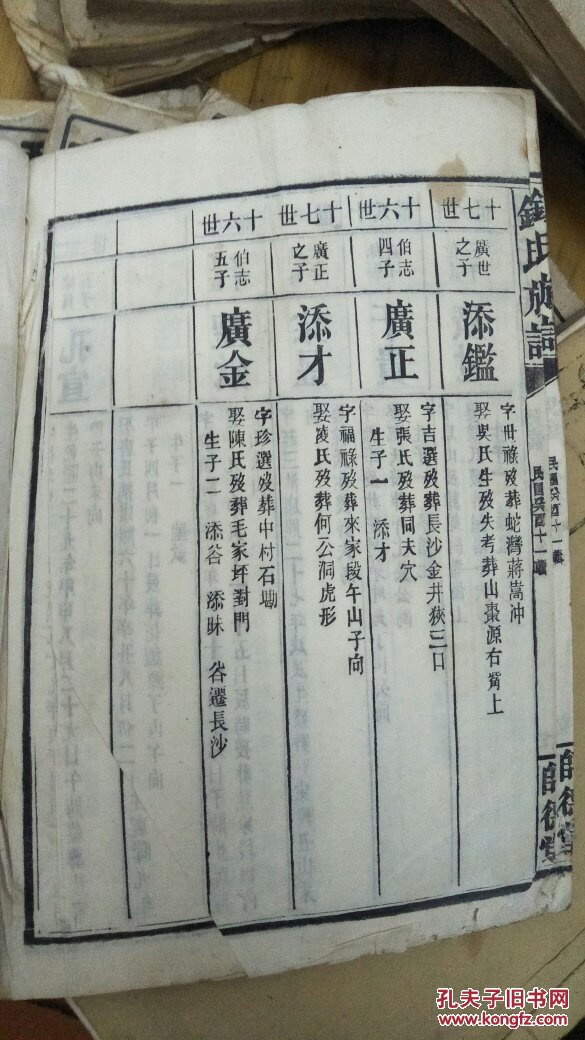 鍾氏族譜
民國癸酉十一輯
十七世
廣世之子
添鑑
字世祿歿葬蛇灣蔣嵩冲
娶吳氏生歿失考葬山棗源右觜上
十六世
伯志四子
廣正
字吉選歿葬長沙金井狹三口
娶張氏歿葬同夫穴
生子一 添才
十七世
廣正之子
添才
字福祿歿葬來家段午山子向
娶凌氏歿葬何公洞虎形
十六世
伯志五子
廣金
字珍選歿葬中村石坳
娶陳氏歿葬毛家坪對門
生子二 添谷 添昧 谷遷長沙
孔夫子旧书网
www.kongfz.com